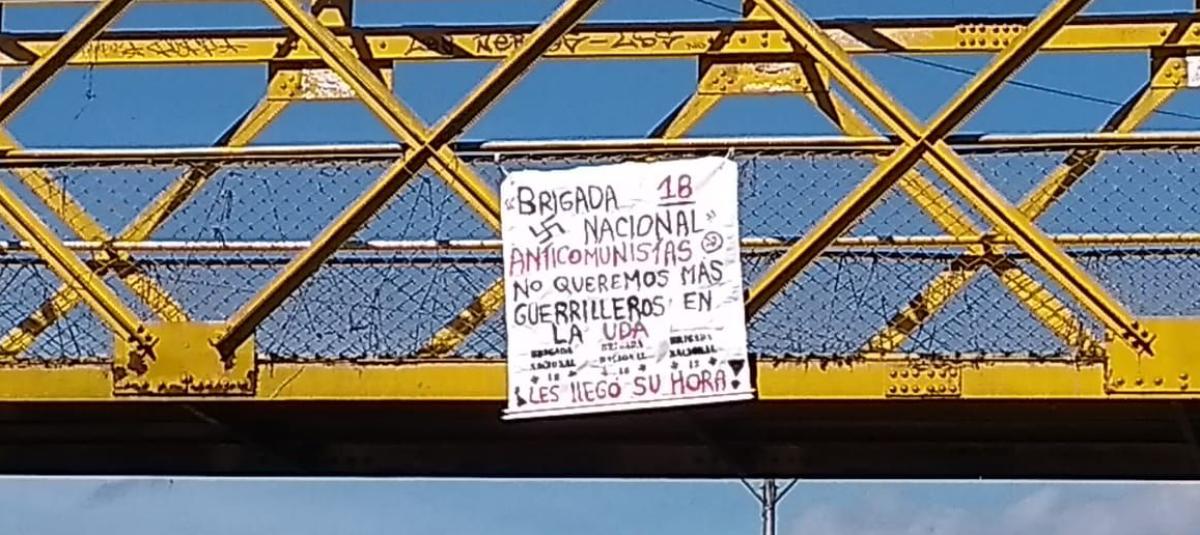 "BRIGADA 18
NACIONAL"
ANTICOMUNISTAS
NO QUEREMOS MAS
GUERRILLEROS EN
LA UDA
BRIGADA BRIGADA BRIGADA
NACIONAL NACIONAL NACIONAL
* 18 * * 18 * * 18 *
¡LES llEGO SU HORA!